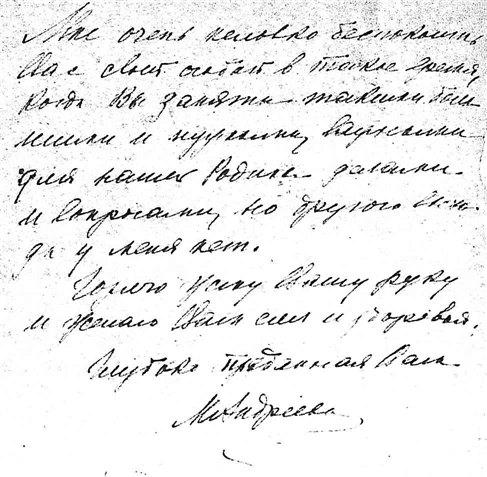 Мне очень неловко беспокоить
Вас своей особой в такое время,
когда Вы заняты такими боль-
шими и нужными, важными
для нашей Родины делами
и вопросами, но другого выхо-
да у меня нет.
Горячо жму Вашу руку
и желаю Вам сил и здоровья.
Глубоко преданная Вам
М. Андреева